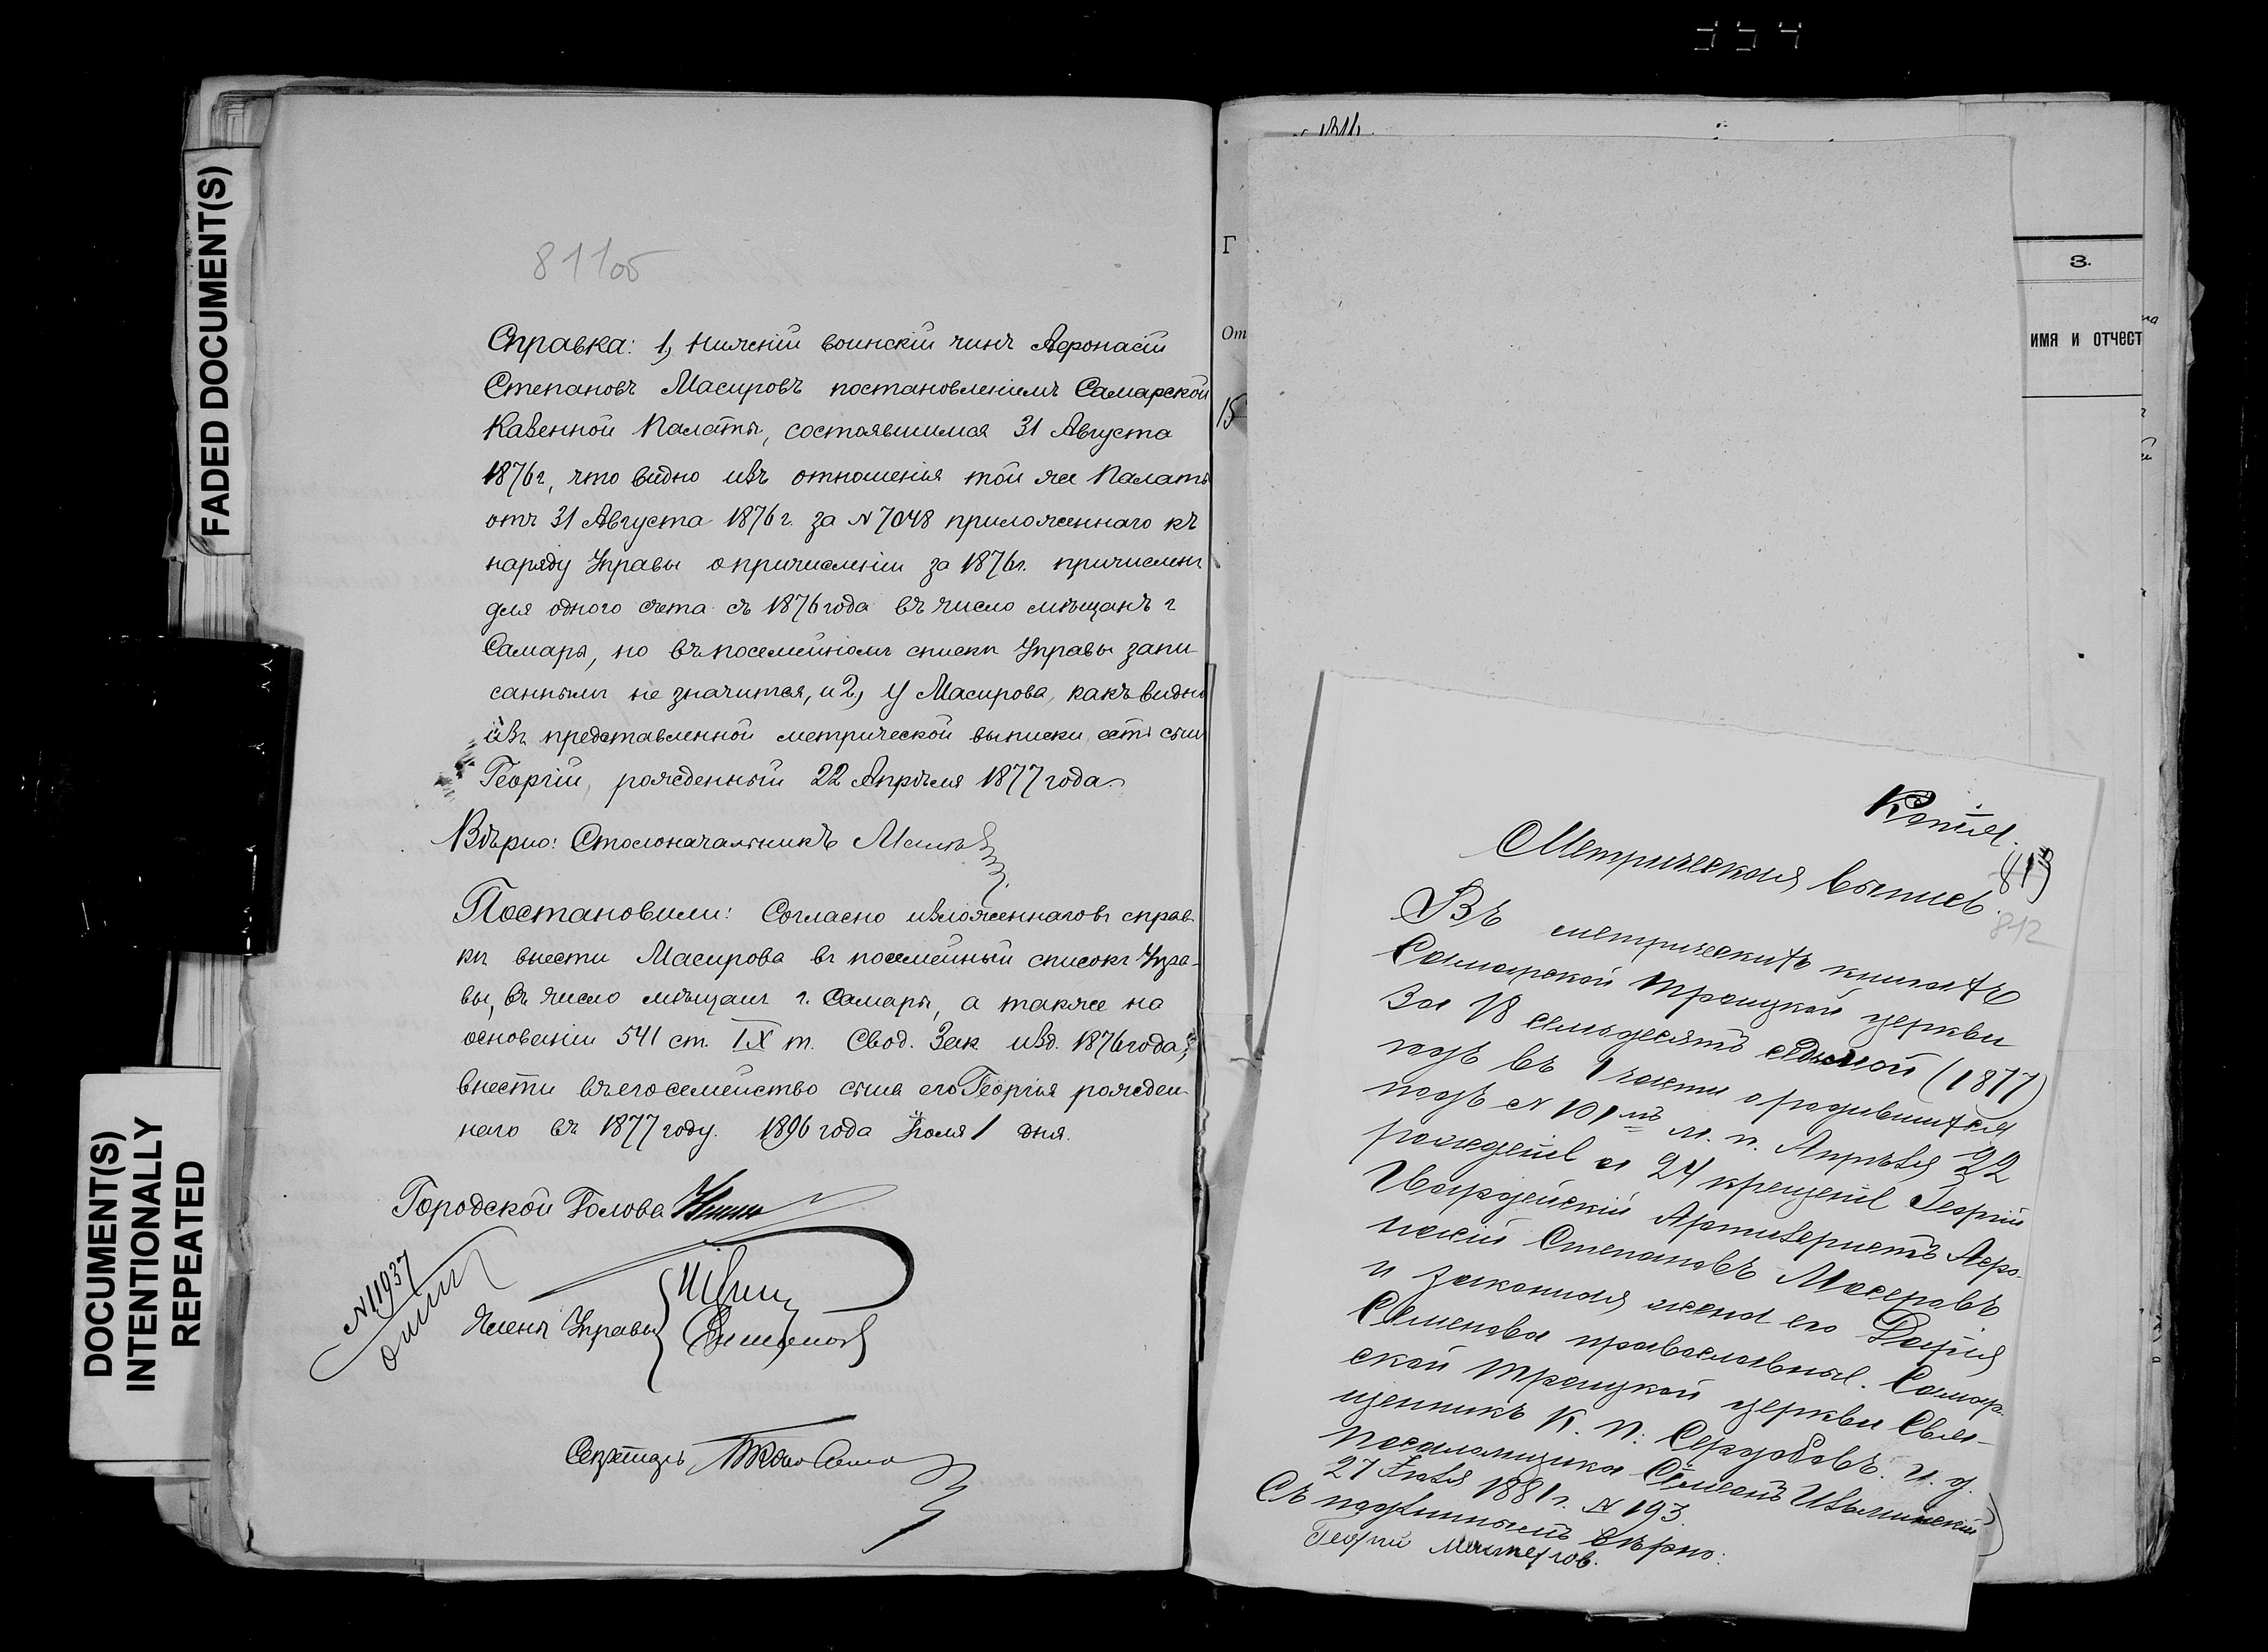 FADED DOCUMENT(S)
DOCUMENT(S)
INTENTIONALLY
REPEATED
811об
Справка: 1, Нижній воинскій чинъ Афонасій
Степановъ Масировъ постановленіемъ Самарской
Казенной Палаты, состоявшимся 31 Августа
1876 г, что видно изъ отношенія той же Палаты
отъ 31 Августа 1876 г. за № 7048 приложеннаго къ
наряду Управы о причисленіи за 1876 г. причисленъ
для одного счета съ 1876 года въ число мѣщанъ г
Самары, но въ посемейномъ списки Управы запи
саннымъ не значится, и 2, У Масирова, какъ видно
изъ представленной метрической выписки есть сынъ
Георгій, рожденный 22 Апрѣля 1877 года.
Вѣрно: Столоначальникъ
Постановили: Согласно изложеннаго въ справ
ки внести Масирова въ посемейный списокъ Упра-
вы, въ число мѣщанъ г. Самары, а также на
основаніи 541 ст. IX т. Свод. Зак изд. 1876 года,
внести въ его семейство сына его Георгія рожден
наго въ 1877 году. 1896 года Іюля 1 дня.
Городской Голова
№ 11937
Члены Управы
Секретарь
Г
От
15
3.
ИМЯ И ОТЧЕСТ
Копія.
Метрическая выпись.
812
Въ метрическихъ книгахъ
Самарской Троицкой церкви
За 18 семьдесятъ седьмой (1877)
годъ въ 1 части о родившихся
подъ № 101мъ м. п. Апрѣля 22
рожденъ а 24 крещенъ Георгій
Гвардейскій Артилеристъ Афо-
насій Степановъ Масировъ
и законная жена его Дарія
Семенова православныя. Самар-
ской Троицкой церкви Свя-
щенникъ К. П. Сердобовъ. И. д.
Псаломщика Симеонъ
27 Іюля 1881 г. № 193.
Съ подлиннымъ вѣрно:
Георгій